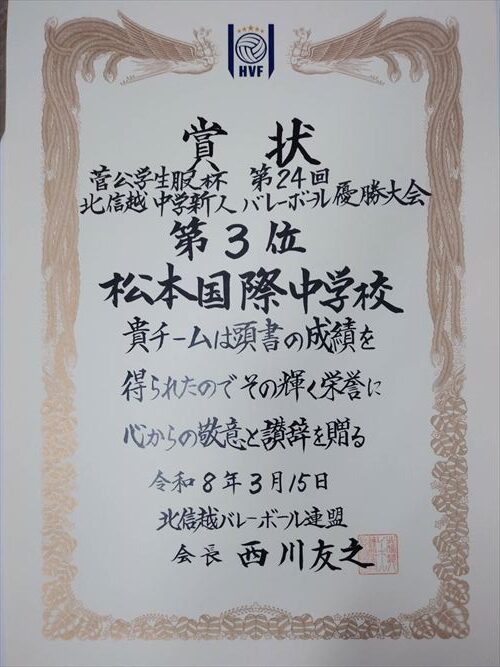 HVF
賞状
菅公学生服杯 第24回
北信越中学新人バレーボール優勝大会
第3位
松本国際中学校
貴チームは頭書の成績を
得られたのでその輝く栄誉に
心からの敬意と讃辞を贈る
令和8年3月15日
北信越バレーボール連盟
会長 西川友之